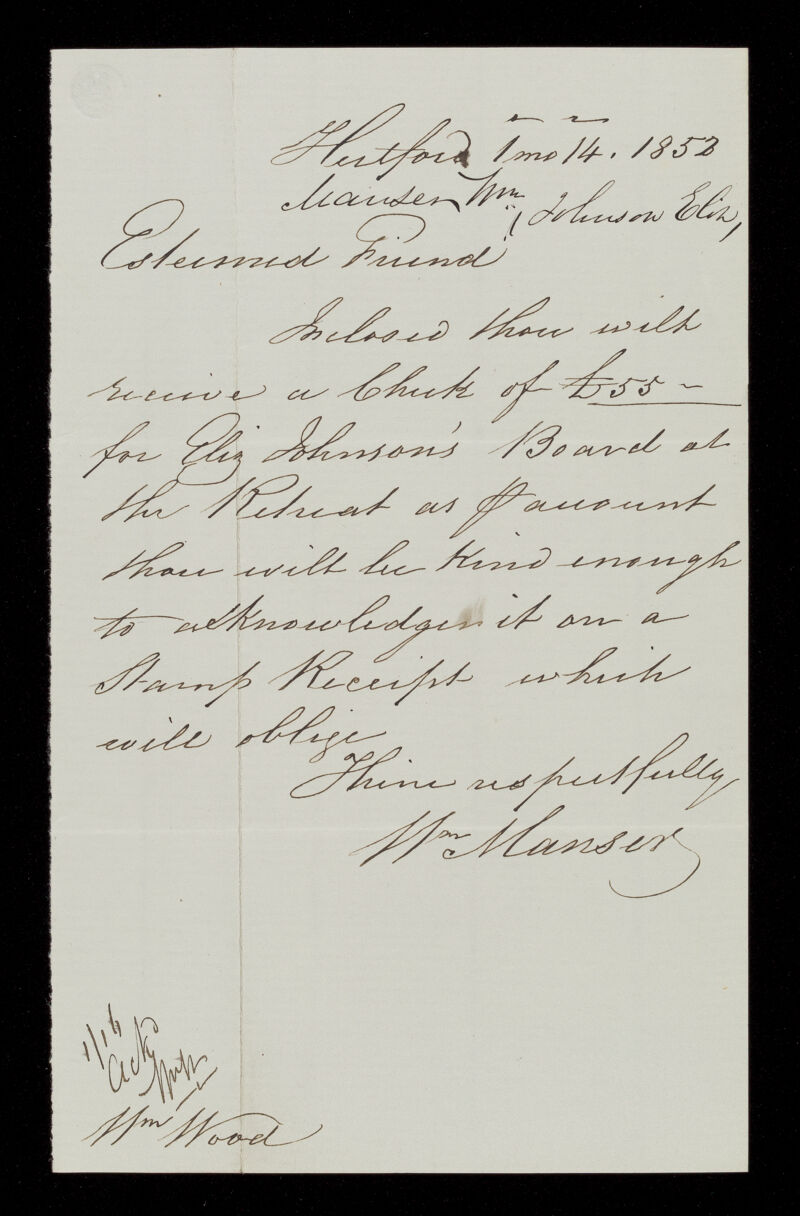 Hertford 1 mo 14. 1852
Manser Wm (Johnson Eliz,
Esteemed Friend
Inclosed thou wilt
receive a Check of £55 ~
for Eliz Johnson's Board at
the Retreat as ⅌ account
thou wilt be kind enough
to acknowledge it on a
Stamp Receipt which
will oblige
Thine respectfully
Wm Manser
1/16
Ackd
Wm Wood